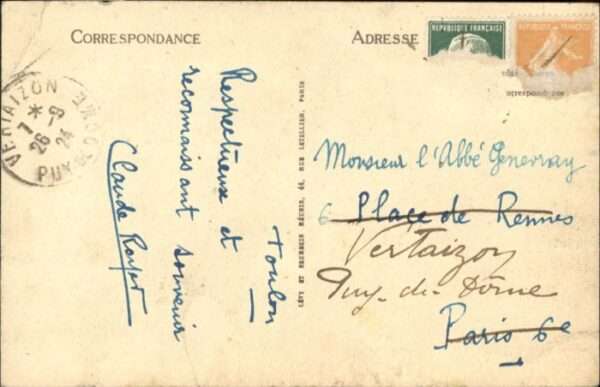 CORRESPONDANCE
ADRESSE
REPUBLIQUE FRANÇAISE
REPUBLIQUE FRANÇAISE
VERTAIZON
7 *
26 -8
24
PUY-DE-DOME
Toulon
Respectueux et
reconnaissant souvenir
Claude
LÉVY ET NEURDEIN RÉUNIS, 44, RUE LETELLIER, PARIS
Monsieur l'Abbé Genevray
6 Place de Rennes
Vertaizon
Puy-de-Dôme
Paris 6e